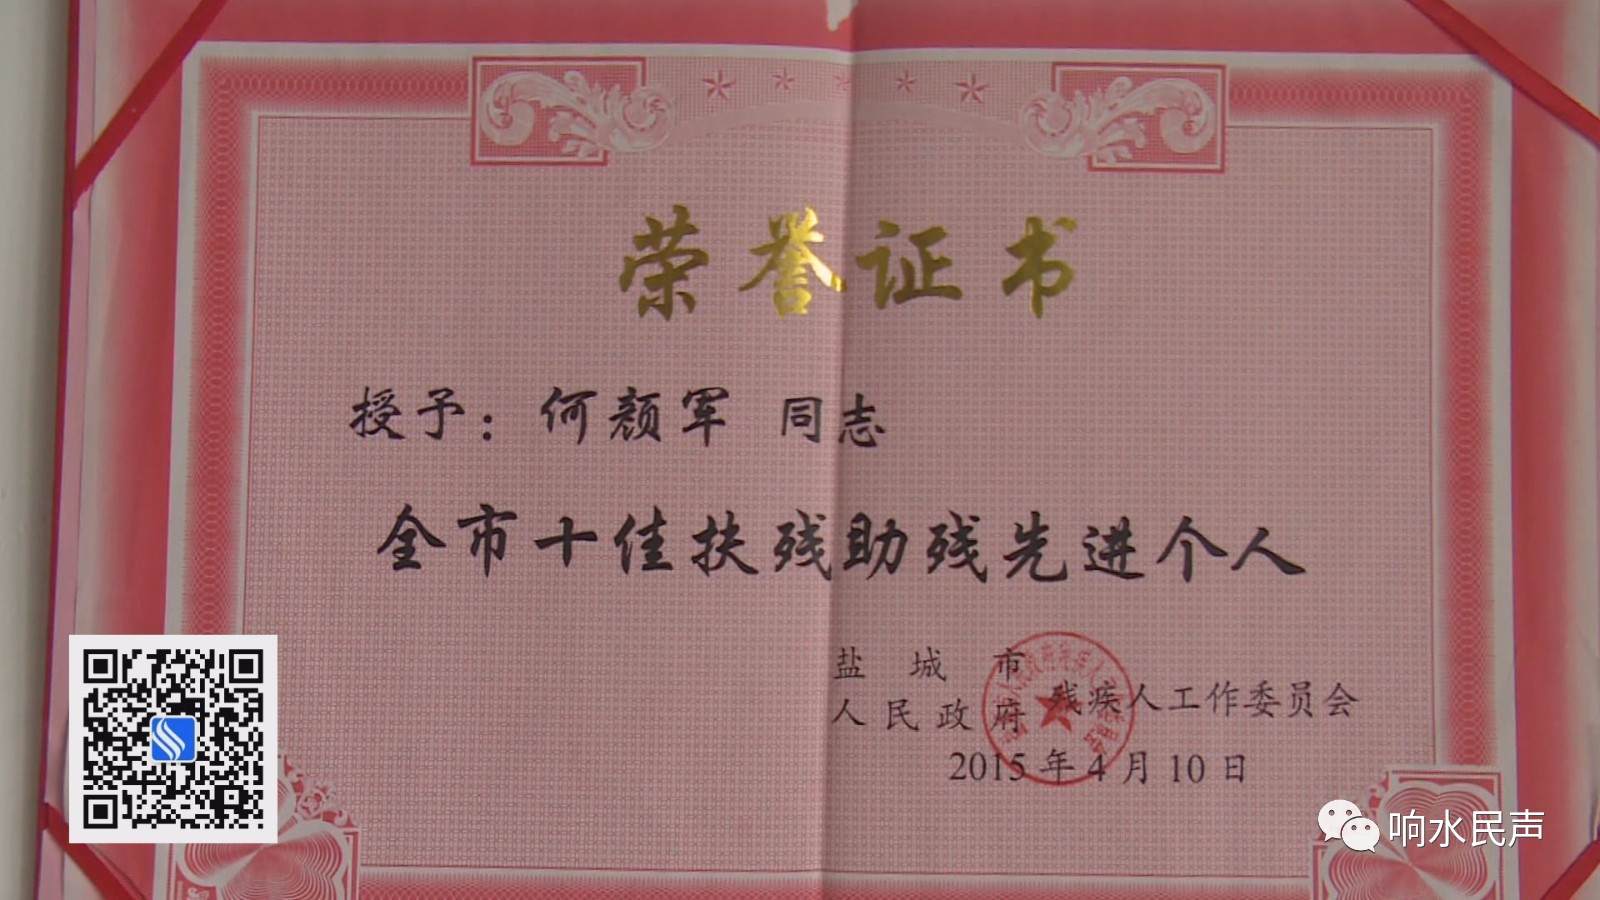 荣誉证书
授予：何颜军 同志
全市十佳扶残助残先进个人
盐城市
人民政府 残疾人工作委员会
2015年4月10日
响水民声